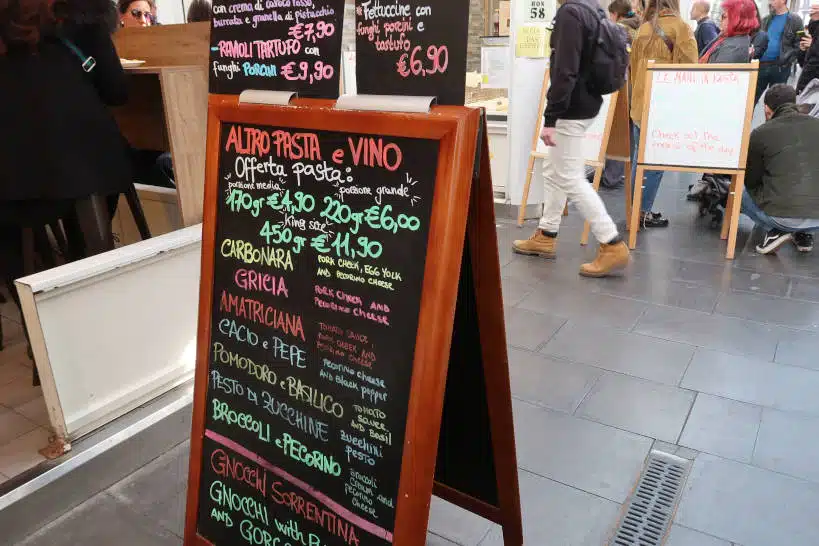 con crema di
burrata e granella di pistacchio
€7,90
-RAVIOLI TARTUFO con
funghi PORCINI €9,90
Fettuccine con
funghi porcini e
tartufo
€6,90
BOX
58
LE MANI IN PASTA
Check out the
menù of the day
ALTRO PASTA e VINO
Offerta pasta:
porzione media
porzione grande
170gr €4,90 220gr €6,00
King size
450gr €11,90
CARBONARA
PORK CHEEK, EGG YOLK
AND PECORINO CHEESE
GRICIA
PORK CHEEK AND
PECORINO CHEESE
AMATRICIANA
TOMATO SAUCE,
PORK CHEEK AND
PECORINO CHEESE
CACIO e PEPE
PECORINO CHEESE
AND BLACK PEPPER
POMODORO e BASILICO
TOMATO
SAUCE
AND BASIL
PESTO DI ZUCCHINE
ZUCCHINI
PESTO
BROCCOLI e PECORINO
BROCCOLI
CREAM AND
PECORINO
CHEESE
GNOCCHI SORRENTINA
GNOCCHI with
AND